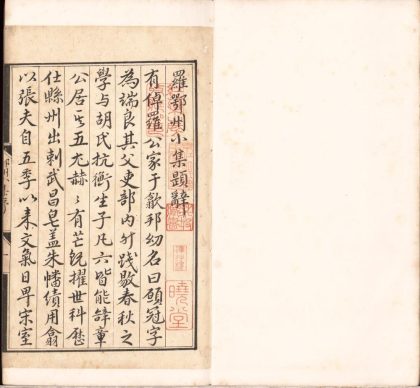 羅鄂州小集題辭
有倬羅公家于歙邦幼名曰願冠字
為端良其父吏部内外踐敭春秋之
學与胡氏抗衡生子凡六皆能辭章
公居其五尤赫〻有芒既擢世科歷
仕縣州出刺武昌皂盖朱幡績用翕
以張夫自五季以来文氣日卑宋室
曉堂